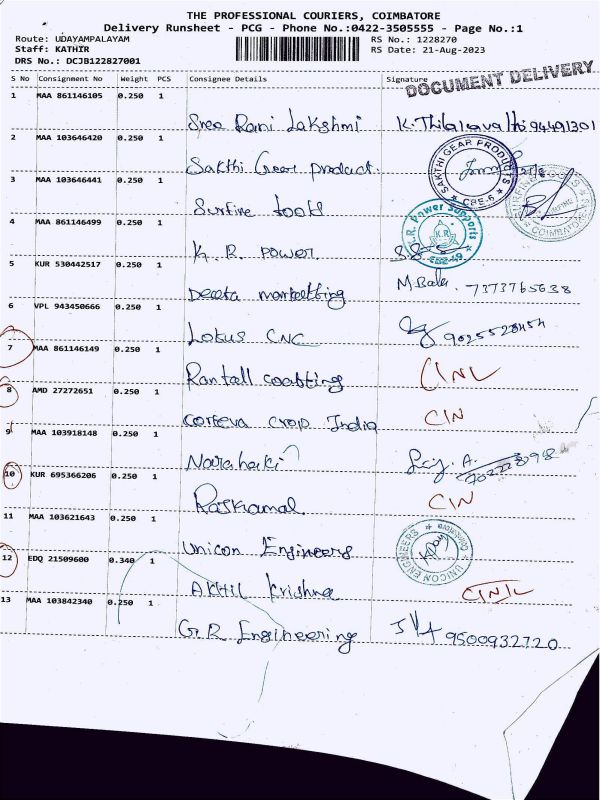 THE PROFESSIONAL COURIERS, COIMBATORE
Delivery Runsheet - PCG - Phone No.:0422-3505555 - Page No.:1
Route: UDAYAMPALAYAM RS No.: 1228270
Staff: KATHIR RS Date: 21-Aug-2023
DRS No.: DCJB122827001
S No Consignment No Weight PCS Consignee Details Signature
DOCUMENT DELIVERY
1 MAA 861146105 0.250 1
Sree Rani Lakshmi
2 MAA 103646420 0.250 1
Sakthi Gear product.
SAKTHI GEAR PRODUCTS
CBE-6
3 MAA 103646441 0.250 1
Surfine tools
COIMBATORE
4 MAA 861146499 0.250 1
K. R. POWER
K.R. Power Supports
K.R.
5 KUR 530442517 0.250 1
Deeeta marketting M Bala. 7373765638
6 VPL 943450666 0.250 1
Lotus CNC
7 MAA 861146149 0.250 1
Rantall coabting CINL
8 AMD 27272651 0.250 1
corteva crop India CIN
9 MAA 103918148 0.250 1
10 KUR 695366206 0.250 1
CIN
11 MAA 103621643 0.250 1
Unicon Engineers
UNICON ENGINEERS
12 EDQ 21509600 0.340 1
AKHIL Krishna
13 MAA 103842340 0.250 1
G.R Engineering 9500932720